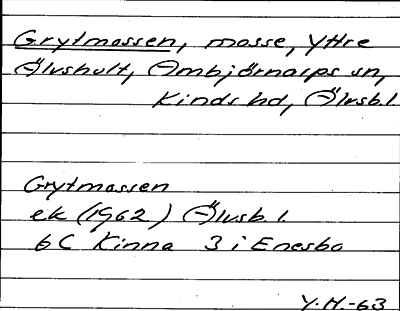 Grytmossen, mosse, Yttre
Älvshult, Ambjörnarps sn,
Kinds hd, Älvsb. l.
Grytmossen
ek (1962) Älvsb. l.
6 C Kinna 3 i Enesbo
Y. H. -63